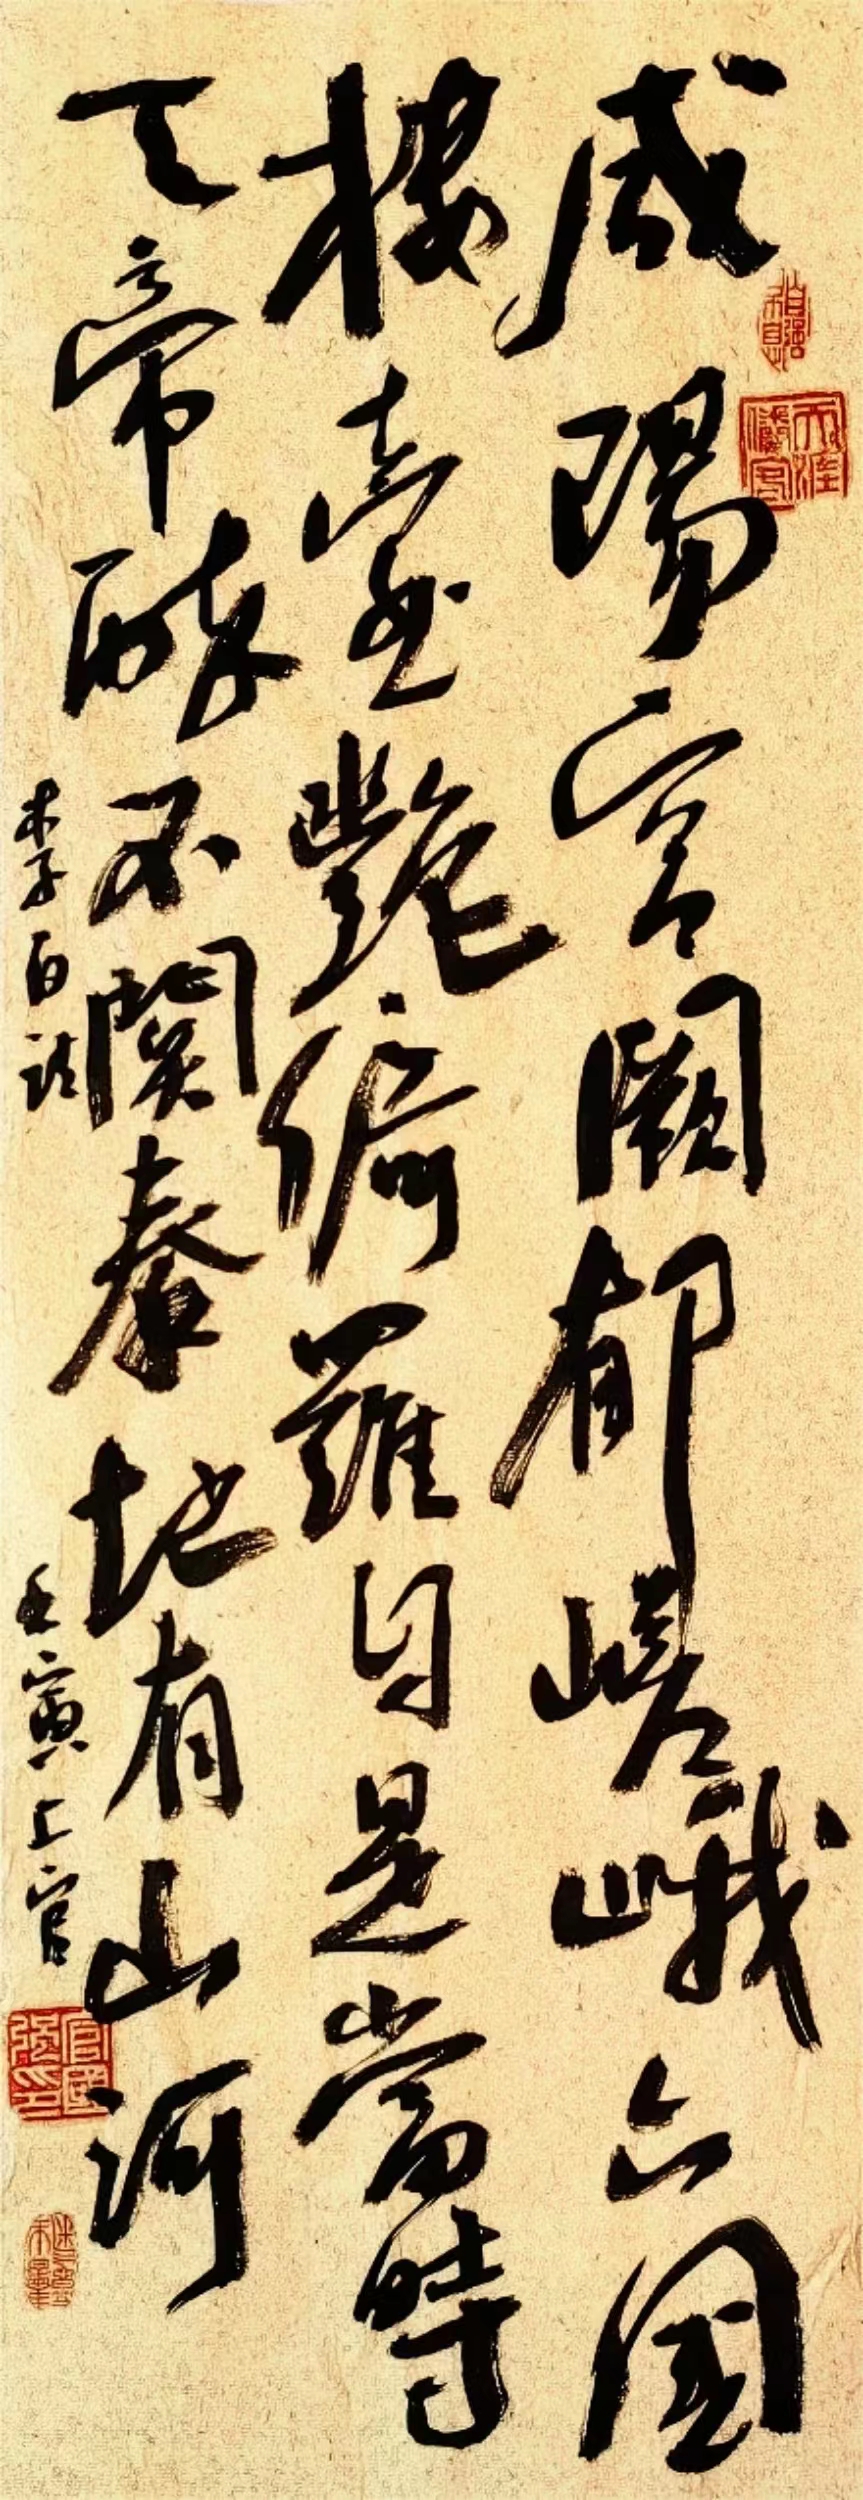 咸陽宫闕郁嵯峨六国
楼臺艷倚羅自是當時
天帝醉不關秦地有山河
李白詩
壬寅上官